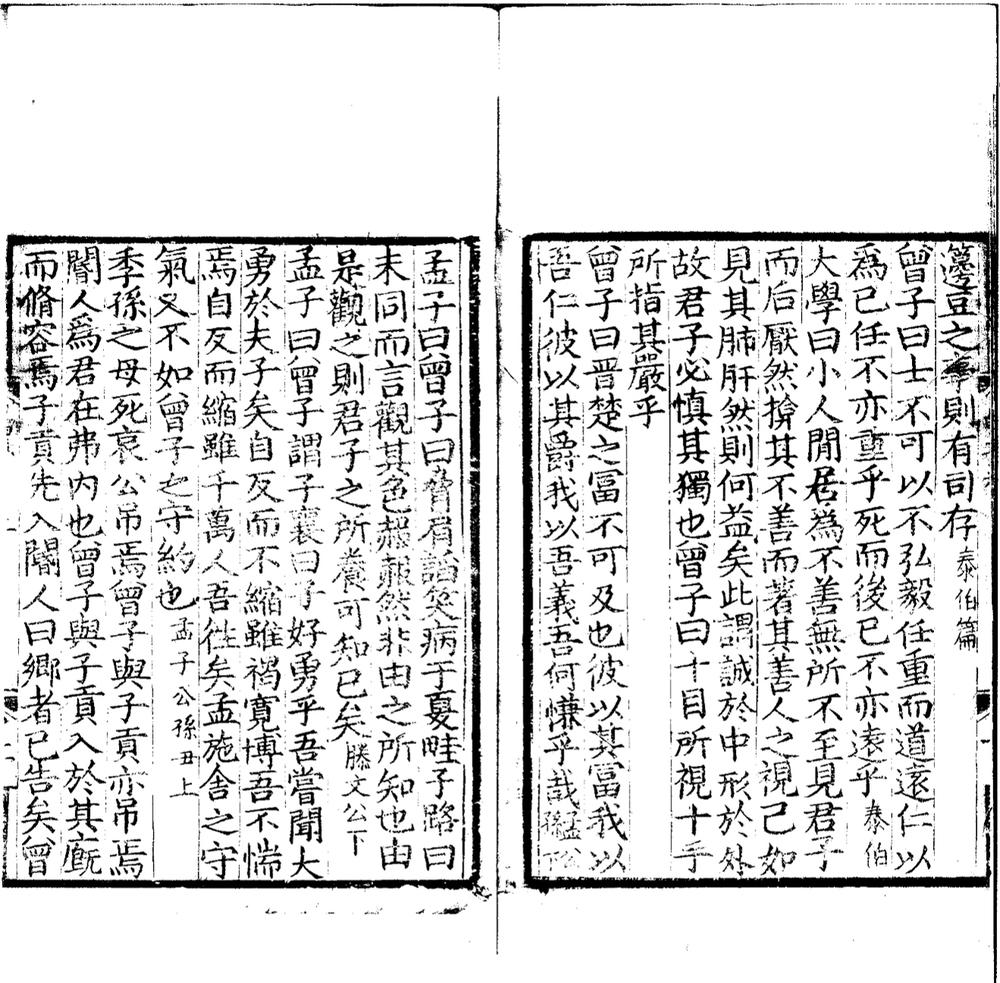 籩豆之事則有司存泰伯篇
曾子曰士不可以不弘毅任重而道遠仁以
爲己任不亦重乎死而後已不亦遠乎泰伯
大學曰小人閒居爲不善無所不至見君子
而后厭然揜其不善而著其善人之視己如
見其肺肝然則何益矣此謂誠於中形於外
故君子必慎其獨也曾子曰十目所視十手
所指其嚴乎
曾子曰晋楚之富不可及也彼以其富我以
吾仁彼以其爵我以吾義吾何慊乎哉
孟子曰曾子曰脅肩諂笑病于夏畦子路曰
未同而言觀其色赧赧然非由之所知也由
是觀之則君子之所養可知已矣滕文公下
孟子曰曾子謂子襄曰子好勇乎吾嘗聞大
勇於夫子矣自反而不縮雖褐寬博吾不惴
焉自反而縮雖千萬人吾徃矣孟施舍之守
氣又不如曾子之守約也孟子公孫丑上
季孫之母死哀公吊焉曾子與子貢亦吊焉
閽人爲君在弗内也曾子與子貢入於其廐
而脩容焉子貢先入閽人曰鄉者已告矣曾